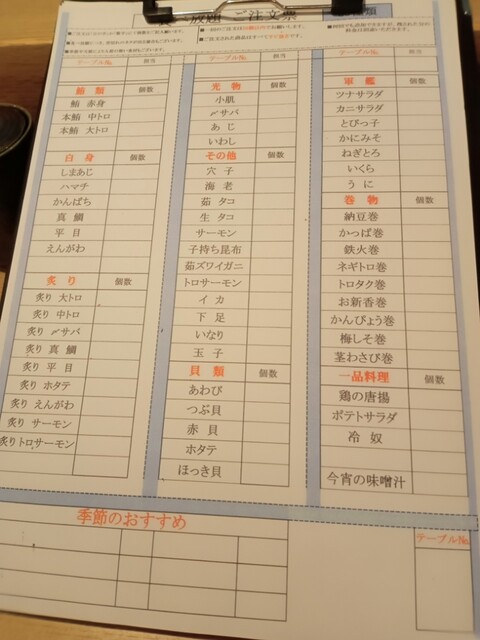 放題 ご注文票
テーブル№ 担当
鮪類 個数
鮪 赤身
本鮪 中トロ
本鮪 大トロ
白身 個数
しまあじ
ハマチ
かんぱち
真鯛
平目
えんがわ
炙り 個数
炙り 大トロ
炙り 中トロ
炙り 〆サバ
炙り 真鯛
炙り 平目
炙り ホタテ
炙り えんがわ
炙り サーモン
炙りトロサーモン
テーブル№ 担当
光物 個数
小肌
〆サバ
あじ
いわし
その他 個数
穴子
海老
茹タコ
生タコ
サーモン
子持ち昆布
茹ズワイガニ
トロサーモン
イカ
下足
いなり
玉子
貝類 個数
あわび
つぶ貝
赤貝
ホタテ
ほっき貝
テーブル№ 担当
軍艦 個数
ツナサラダ
カニサラダ
とびっ子
かにみそ
ねぎとろ
いくら
うに
巻物 個数
納豆巻
かっぱ巻
鉄火巻
ネギトロ巻
トロタク巻
お新香巻
かんぴょう巻
梅しそ巻
茎わさび巻
一品料理 個数
鶏の唐揚
ポテトサラダ
冷奴
今宵の味噌汁
季節のおすすめ
テーブル№